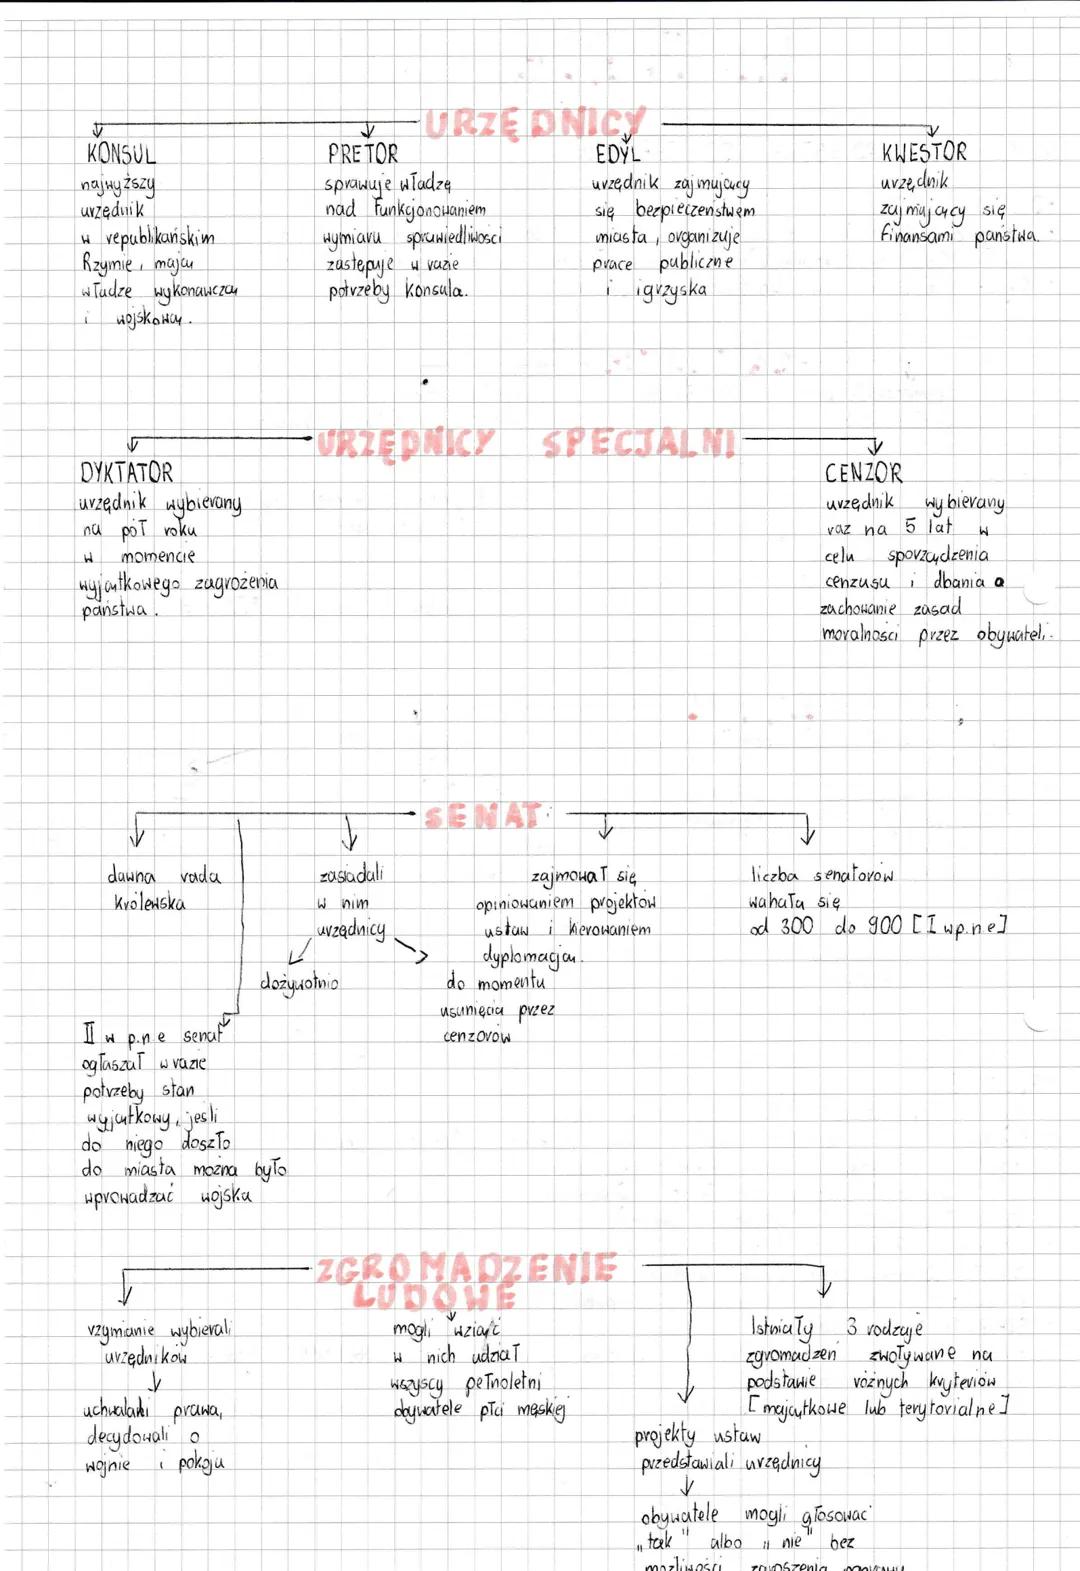 URZĘDNICY
KONSUL
najwyższy
urzędnik
w republikańskim
Rzymie, mając
władze wykonawczą
i wojskową.
PRETOR
sprawuje władzę
nad funkcjonowaniem
wymiaru sprawiedliwości
zastępuje w razie
potrzeby konsula.
EDYL
urzędnik zajmujący
się bezpieczeństwem
miasta, organizuje
prace publiczne
i igrzyska
KWESTOR
urzędnik
zajmujący się
finansami państwa.
URZĘDNICY SPECJALNI
DYKTATOR
urzędnik wybierany
na pół roku
w momencie
wyjątkowego zagrożenia
państwa.
CENZOR
urzędnik wybierany
raz na 5 lat w
celu sporządzenia
cenzusu i dbania o
zachowanie zasad
moralności przez obywateli.
SENAT:
dawna rada
królewska
zasiadali
w nim
urzędnicy
dożywotnio
zajmował się
opiniowaniem projektów
ustaw i kierowaniem
dyplomacją.
do momentu
usunięcia przez
cenzorów
liczba senatorów
wahała się
od 300 do 900 [I w p.n.e]
II w p.n.e senat
ogłaszał w razie
potrzeby stan
wyjątkowy, jeśli
do niego doszło
do miasta można było
wprowadzać wojska
ZGROMADZENIE
LUDOWE
rzymianie wybierali
urzędników
uchwalali prawa,
decydowali o
wojnie i pokoju
mogli wziąć
w nich udział
wszyscy pełnoletni
obywatele płci męskiej
Istniały 3 rodzaje
zgromadzeń zwoływane na
podstawie różnych kryteriów
[majątkowe lub terytorialne]
projekty ustaw
przedstawiali urzędnicy
obywatele mogli głosować
„tak" albo „nie" bez
możliwości zgłoszenia poprawy